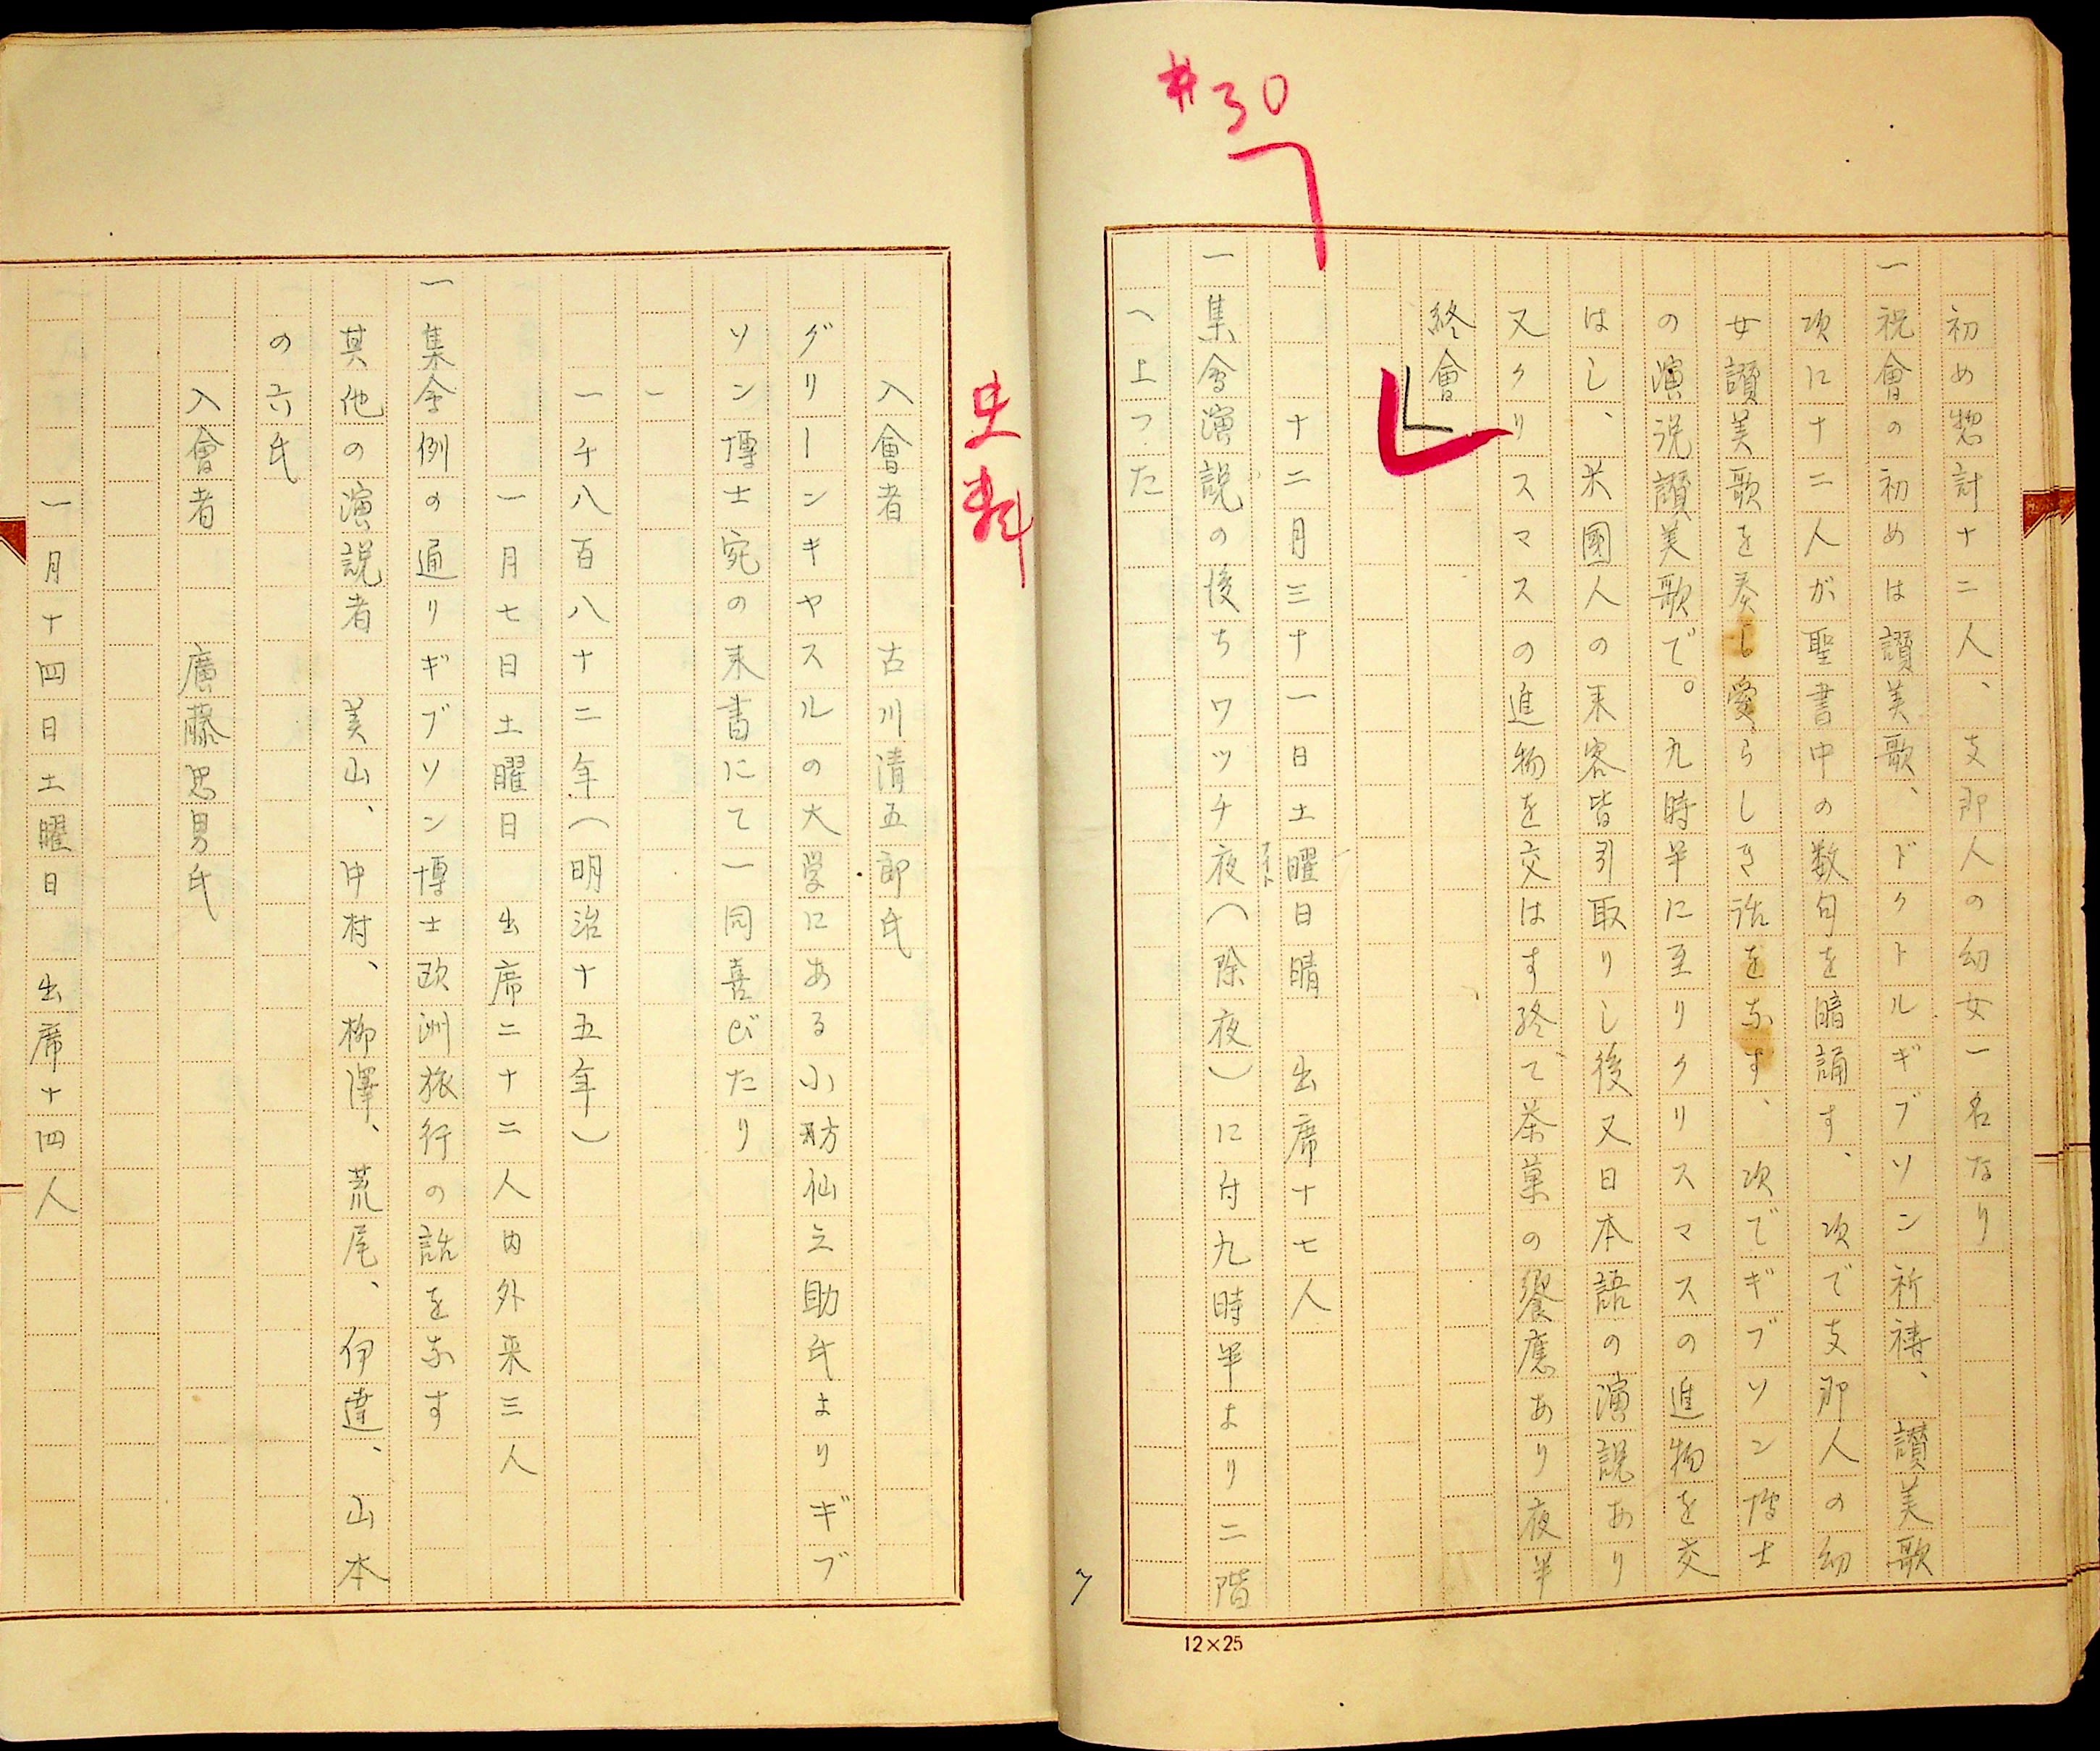 #30
初め惣計十二人、支那人の幼女一名なり
一祝會の初めは讃美歌、ドクトルギブソン祈祷、讃美歌
次に十二人が聖書中の数句を暗誦す、次で支那人の幼
女讃美歌を奏し愛らしき話をなす、次でギブソン博士
の演説讃美歌で。九時半に至りクリスマスの進物を交
はし、米國人の来客皆引取りし後又日本語の演説あり
又クリスマスの進物を交はす終て茶菓の饗應あり夜半
終會
十二月三十一日土曜日晴 出席十七人
一集會演説の後ちワツチ夜(除夜)に付九時半より二階
へ上つた
7
12×25
史料
入會者 古川清五郎氏
グリーンキヤスルの大学にある小舫仙之助氏よりギブ
ソン博士宛の来書にて一同喜びたり
一
一千八百八十二年(明治十五年)
一月七日土曜日 出席二十二人内外来三人
一集会例の通りギブソン博士欧洲旅行の話をなす
其他の演説者 美山、中村、柳澤、荒尾、伊達、山本
の六氏
入會者 廣藤思男氏
一月十四日土曜日 出席十四人